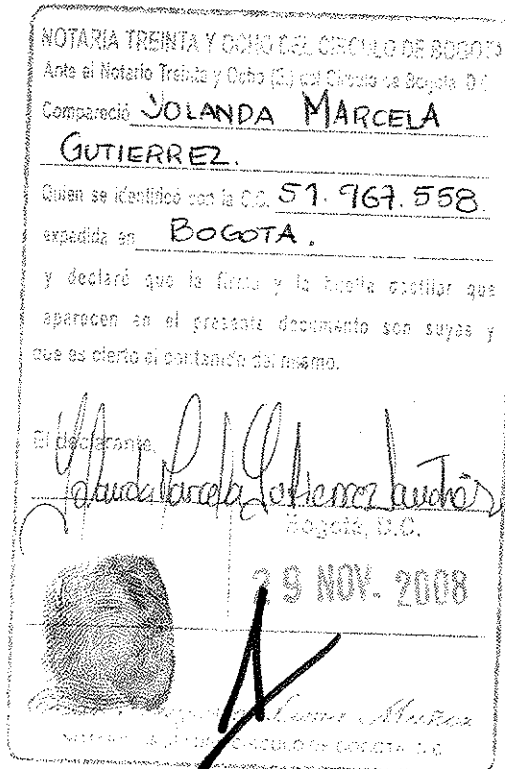 NOTARIA TREINTA Y OCHO DEL CIRCULO DE BOGOTA
Ante el Notario Treinta y Ocho (E.) del Circulo de Bogotá D.C.
Compareció YOLANDA MARCELA
GUTIERREZ.
Quien se identificó con la C.C. 51.967.558.
expedida en BOGOTA.
y declaró que la firma y la huella dactilar que
aparecen en el presente documento son suyas y
que es cierto el contenido del mismo.
El declarante,
Yolanda Marcela Gutierrez
Bogotá, D.C.
29 NOV. 2008
Muñoz
CIRCULO DE BOGOTA D.C.